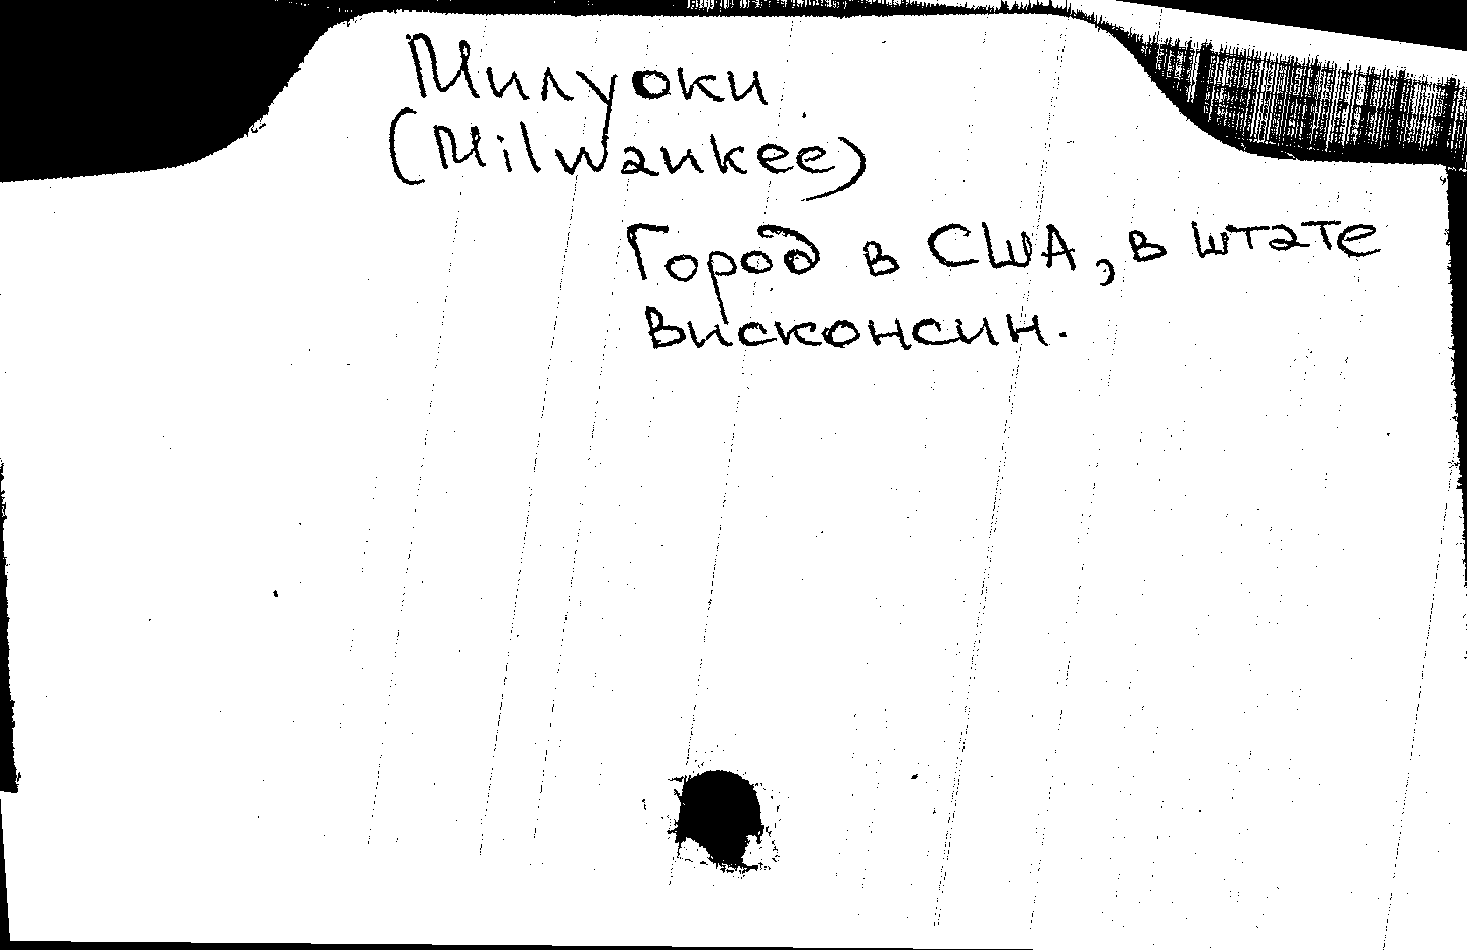 Милуоки
(Milwaukee)
Город в США, в штате
Висконсин.